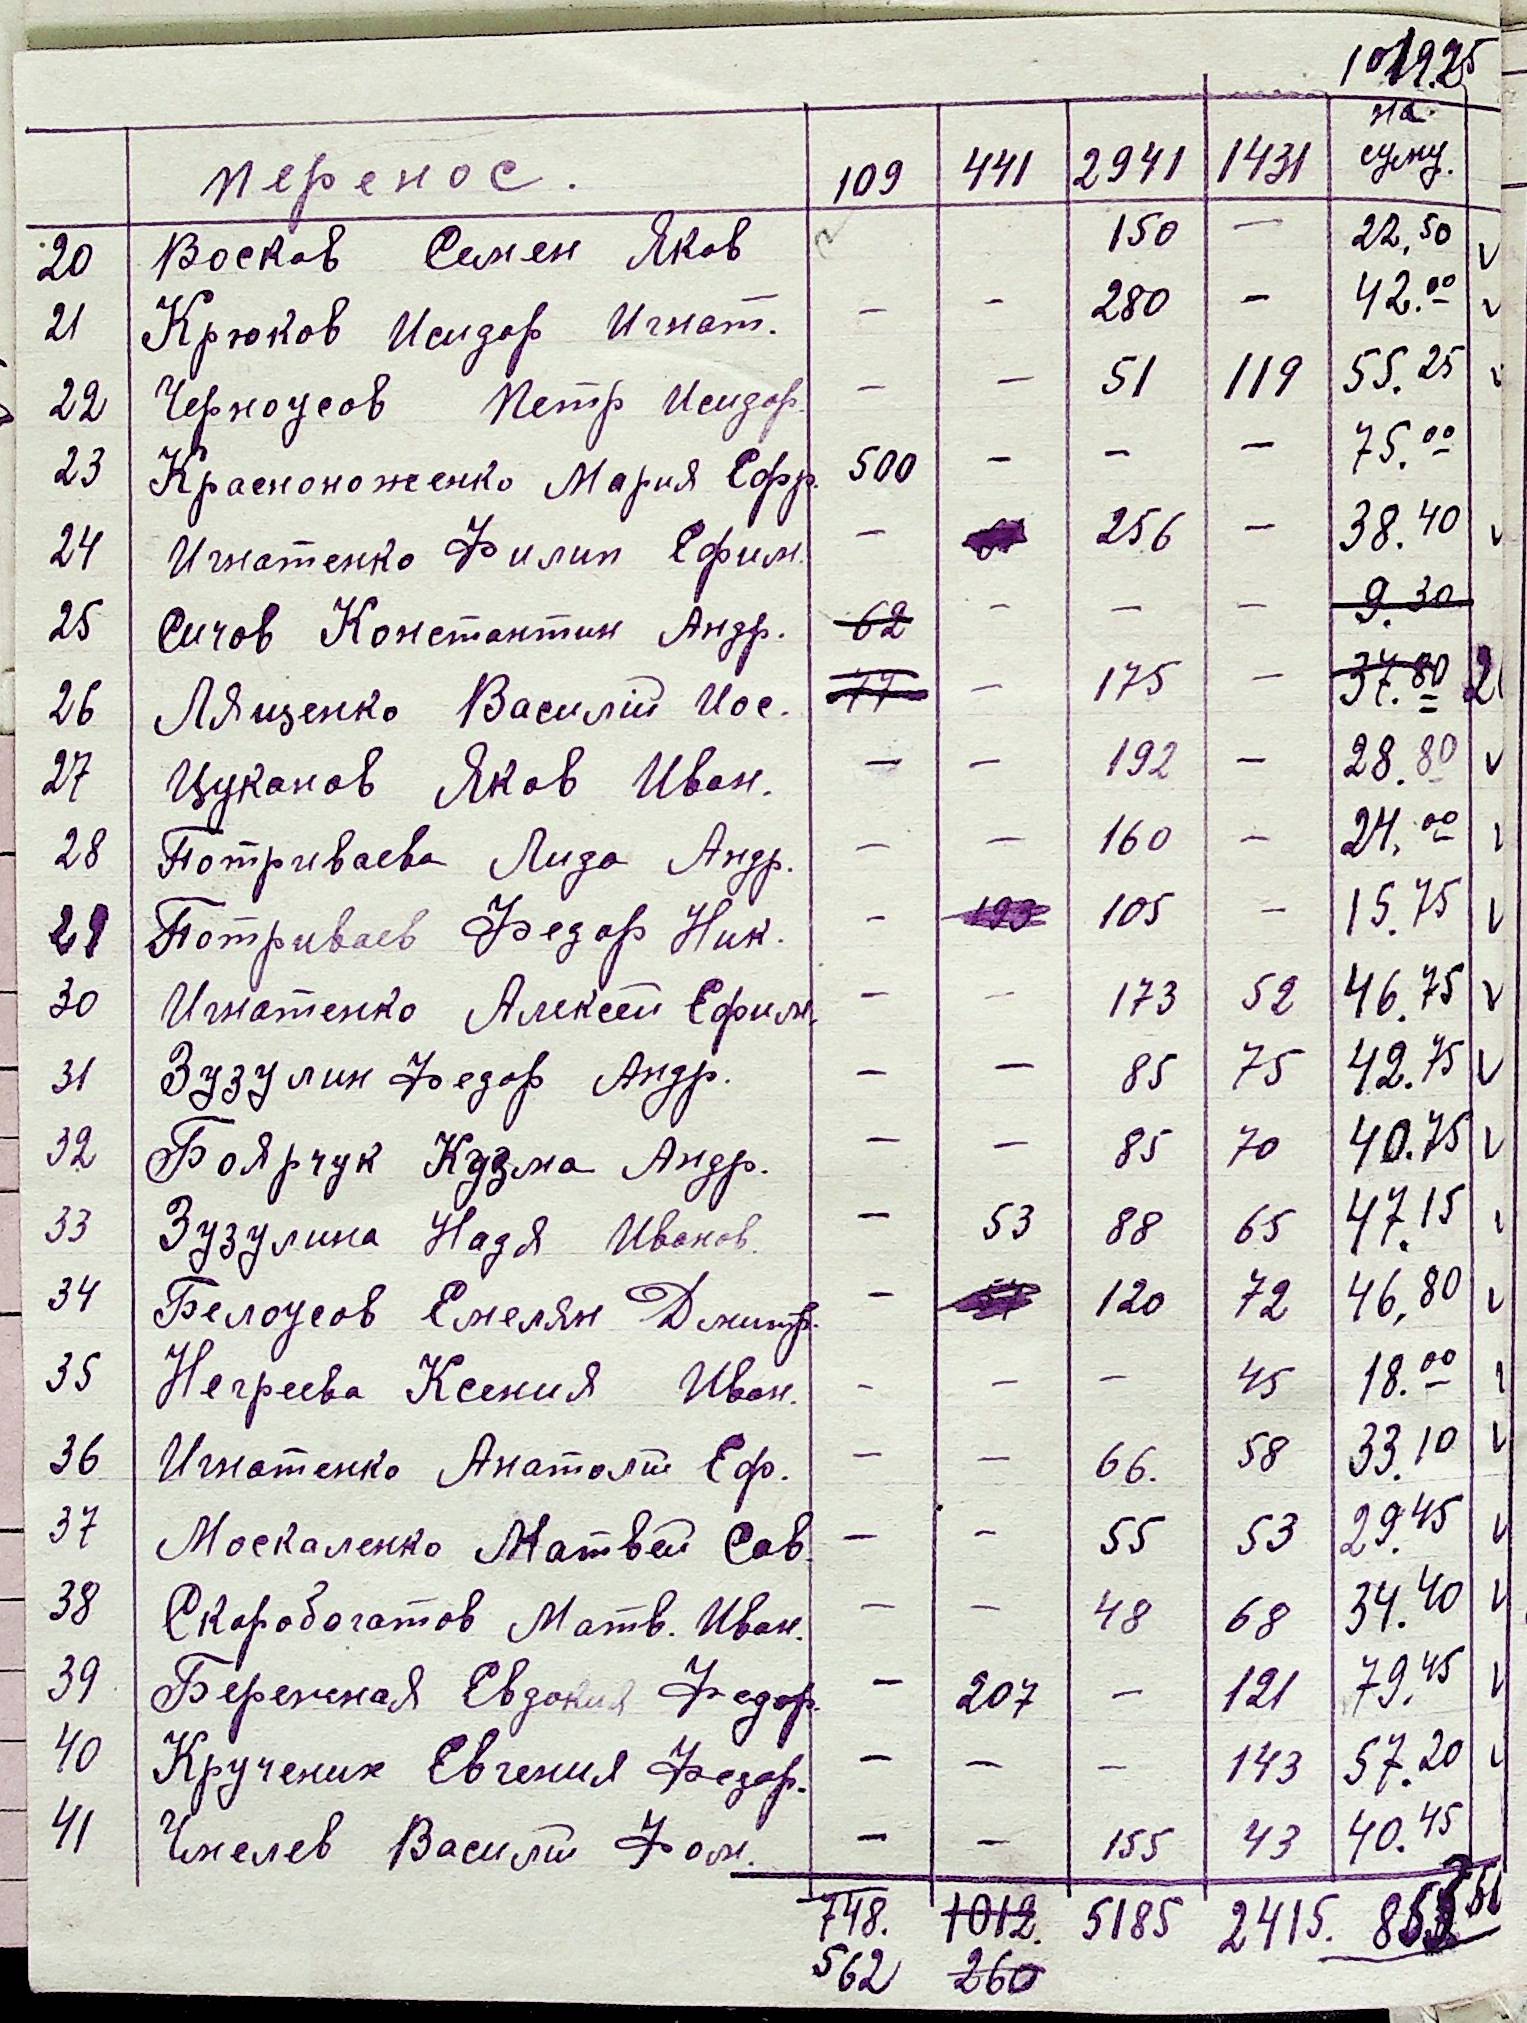 1019.25
Перенос. 109 441 2941 1431 на суму.
20 Восков Семен Яков 150 — 22,50 v
21 Крюков Исидор Игнат. — — 280 — 42.00 v
22 Черноусов Петр Исидор. — — 51 119 55.25 v
23 Красноноженко Мария Ефр. 500 — — — 75.00
24 Игнатенко Филип Ефим. — 256 — 38.40 v
25 Сичов Константин Андр. 62 — — — 9.30
26 Лященко Василий Иос. 77 — 175 — 37.80
27 Цуканов Яков Иван. — — 192 — 28.80 v
28 Потриваева Лида Андр. — — 160 — 24.00 v
29 Потриваев Федор Ник. — 193 105 — 15.75 v
30 Игнатенко Алексей Ефим. — — 173 52 46.75 v
31 Зузулин Федор Андр. — — 85 75 42.75 v
32 Боярчук Кузма Андр. — — 85 70 40.75 v
33 Зузулина Надя Иванов. — 53 88 65 47.15 v
34 Белоусов Емелян Дмитр. — 120 72 46,80 v
35 Негреева Ксения Иван. — — — 45 18.00 v
36 Игнатенко Анатолий Еф. — — 66. 58 33.10 v
37 Москаленко Матвей Сав. — — 55 53 29.45 v
38 Скоробогатов Матв. Иван. — — 48 68 34.40 v
39 Бережная Евдокия Федор. — 207 — 121 79.45 v
40 Крученик Евгения Федор. — — — 143 57.20 v
41 Чмелев Василий Фом. — — 155 43 40.45
748. 1012. 5185 2415.
562 260